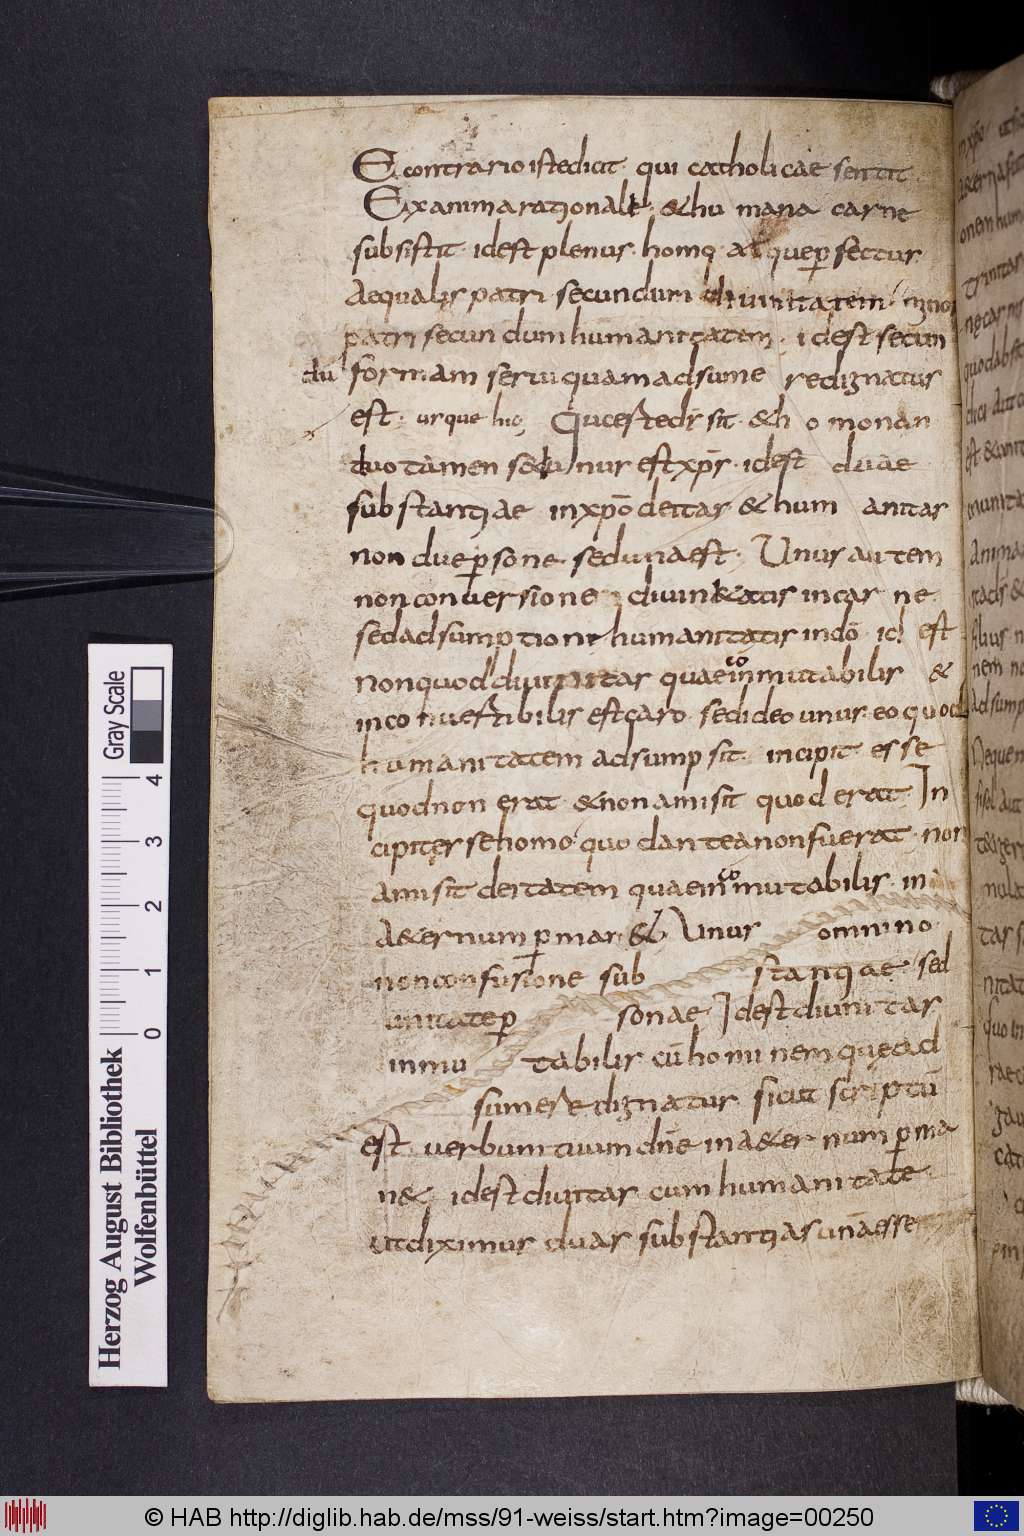 E contrario iste dicit qui catholicae sentit
Ex anima rationale · & humana carne
subsistit · id est plenus homo atque perfectus
Aequalis patri secundum divinitatem minor
patri secundum humanitatem · id est secun
du formam servi quam adsumere dignatus
est · usque hic Qui ceste d̄s sit · & homo non
duo tamen sed unus est xp̄s · id est duae
substantiae in xp̄o deitas & humanitas
non due p̄sone sed una est · Unus autem
non conversione divinitatis in carne
sed adsumptione humanitatis in dō id est
non quod divinitas quae inco mutabilis &
inconvertibilis est caro sed ideo unus eo quod
humanitatem adsumpsit · incipit esse
quod non erat & non amisit quod erat In
cipit esse homo quod antea non fuerat · non
amisit deitatem quae inco mutabilis · in
a&ernum p̄man& Unus omnino
non confusione substantiae sed
unitate p̄sonae Id est divinitas
inmutabilis cū homine que ad
sumere dignatus sicut scriptū
est · verbum tuum dn̄e in a&ernum p̄ma
n& id est divinitas cum humanitate
ut diximus duas substantias una esse
Gray Scale
0 1 2 3 4
Herzog August Bibliothek
Wolfenbüttel
© HAB http://diglib.hab.de/mss/91-weiss/start.htm?image=00250